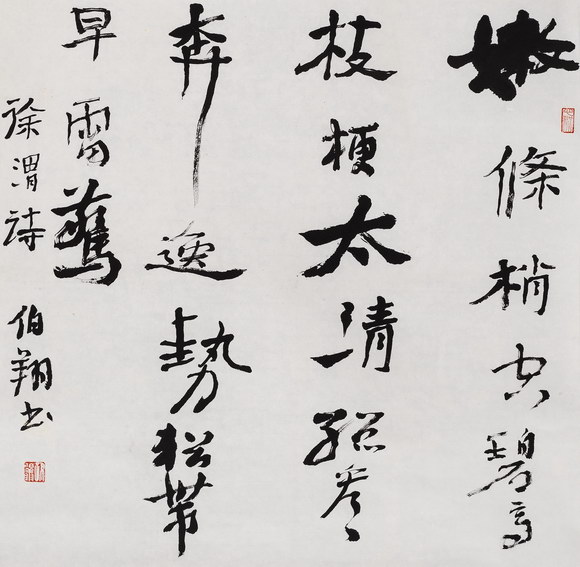 嫩條梢空碧高
枝梗太清總看
奔逸勢猶帶
早雷驚
徐渭詩 伯翔書